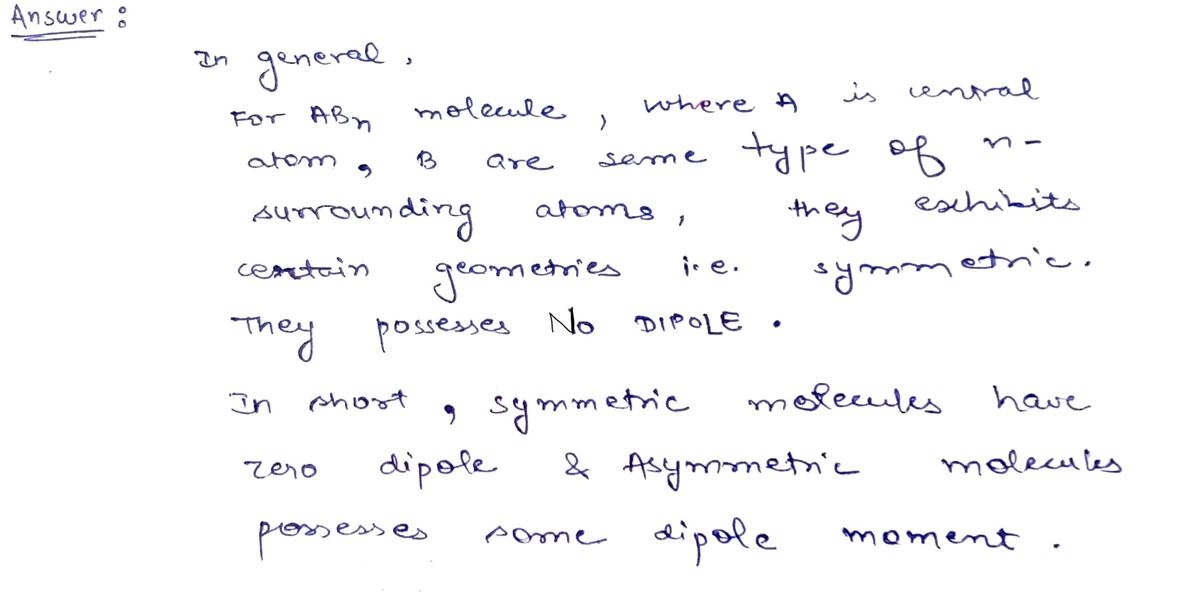 Answer :
In general,
For ABn molecule, where A is central
atom, B are same type of n-
surrounding atoms, they exhibits
certain geometries i.e. symmetric.
They possesses No DIPOLE.
In short, symmetric molecules have
zero dipole & Asymmetric molecules
possesses some dipole moment.